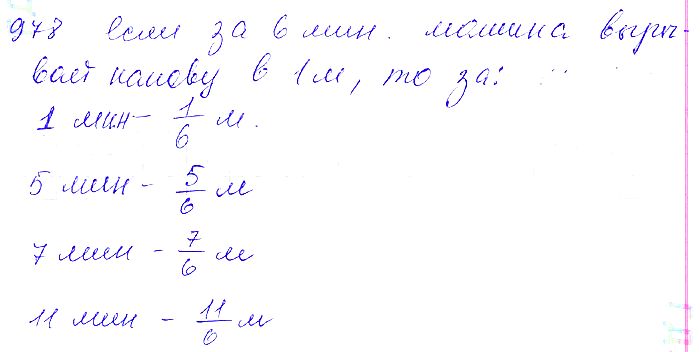 978 если за 6 мин. машина выры-
вает канаву в 1м, то за:
1 мин - 1/6 м.
5 мин - 5/6 м
7 мин - 7/6 м
11 мин - 11/6 м